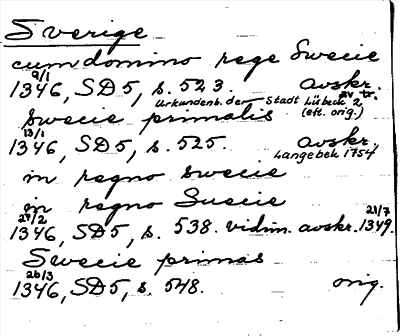 Sverige
cum domino rege Swecie
9/1
1346, SD5, s. 523. avskr.
Urkundenb. der Stadt Lübeck 2,
(eft. orig.)
Swecie primatis
13/1
1346, SD5, s. 525. avskr.
Langebek 1754
in regno Swecie
in regno Suecie
27/2 21/7
1346, SD5, s. 538. vidim. avskr. 1349.
Swecie primas
26/3
1346, SD5, s. 548. orig.